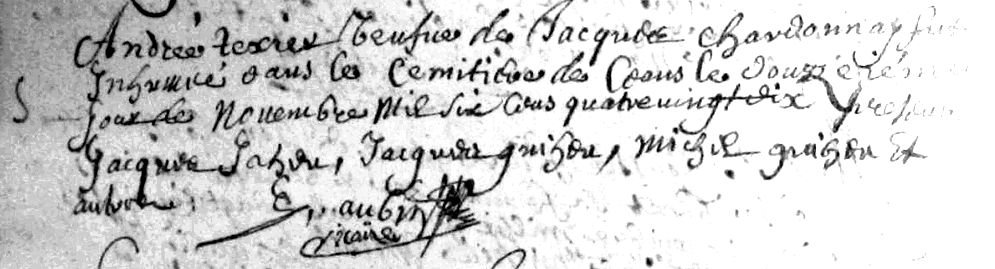 Andrée texier Veufue de Jacques chardonnay fut
Inhumée dans le Cemitiere de Ceans le douzziéme
jour de Nouembre Mil six Cens quatre vingt dix presens
Jacques , Jacques , Michel et
autres .
E, aubin
vicaire